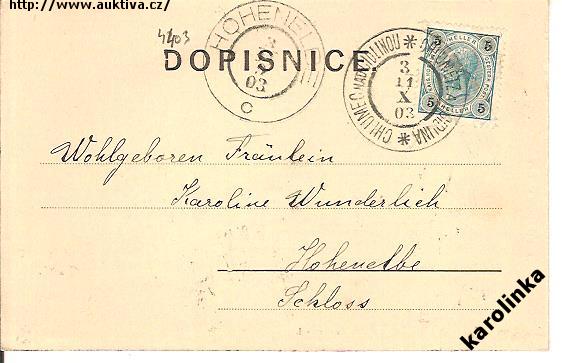 http://www.auktiva.cz/
4403
HOHENELBE
3
X
03
C
DOPISNICE.
CHLUMEC NAD CIDLINOU * CHLUMETZ A. CIDLINA *
3
11
X
03
5 5
HELLER
5 5
HELLER
Wohlgeboren Fräulein
Karoline Wunderlich
Hohenelbe
Schloss
karolinka